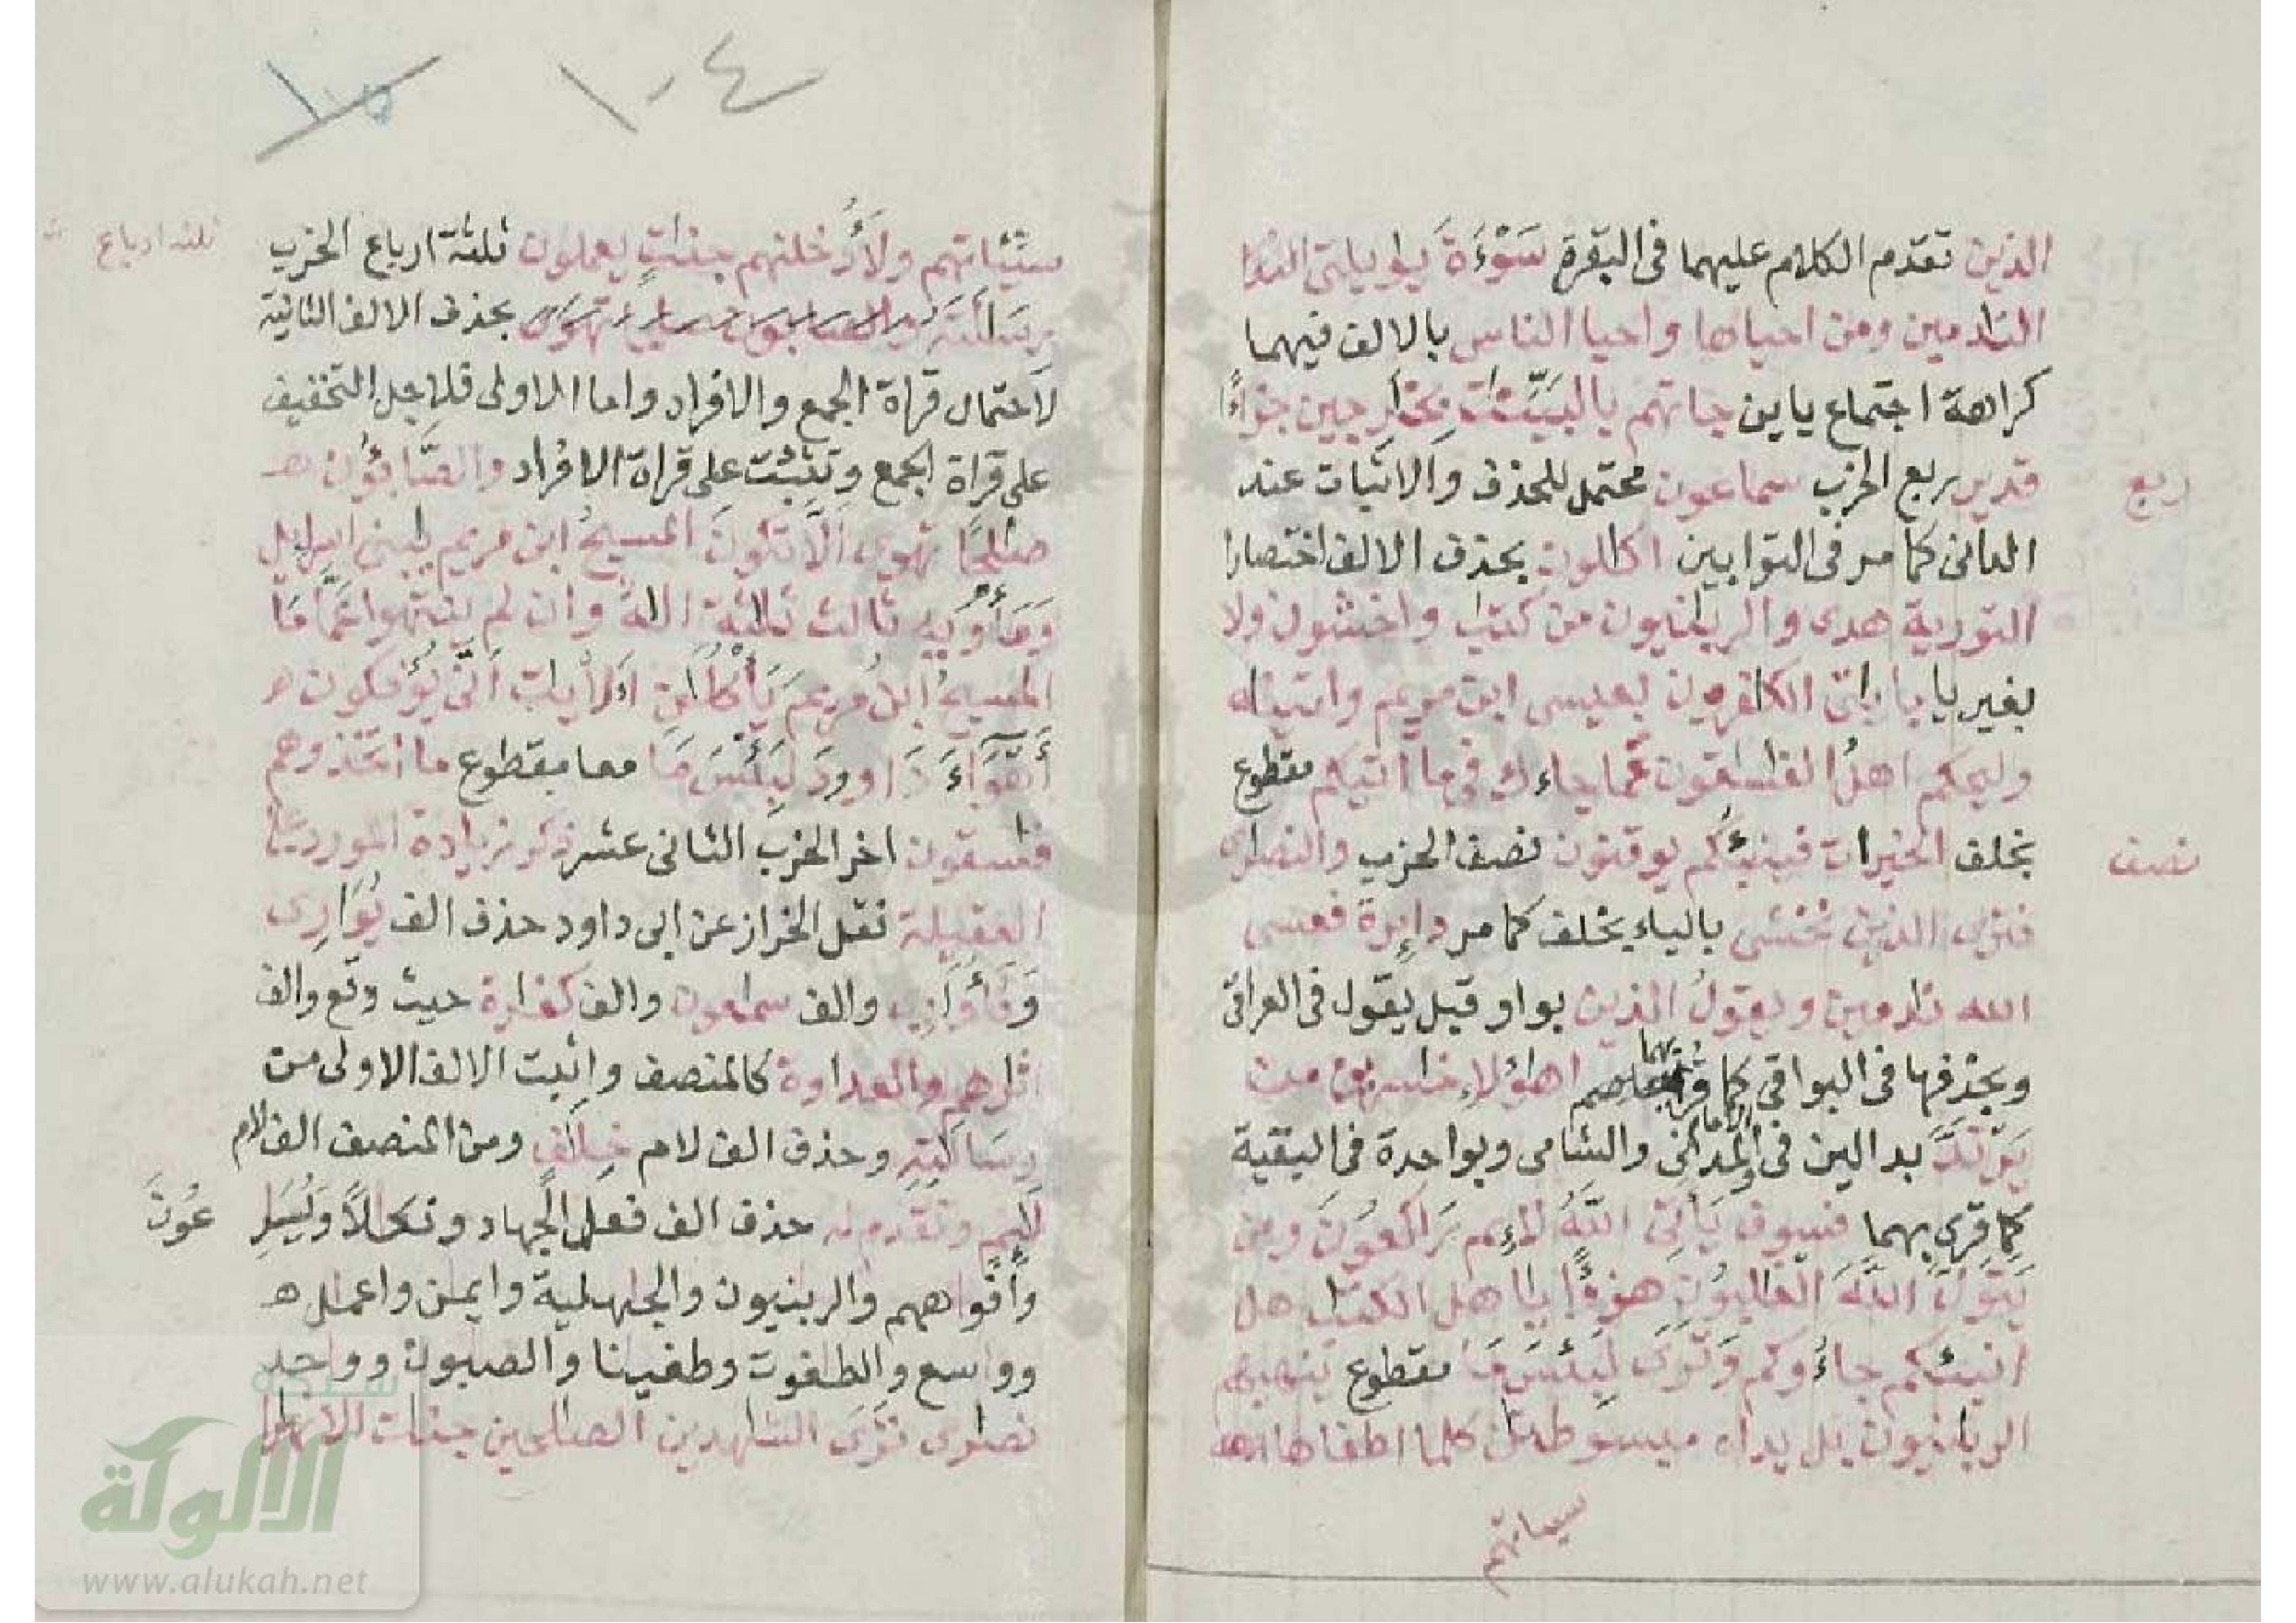 الذين تقدم الكلام عليهما فى البقرة سَوْءَةَ يويلتى
الندمين ومن احياها واحيا الناس بالالف فيهما
كراهة اجتماع ياين جاتهم بالبينت بخرجين جزاؤا
ربع
قدير ربع الحزب سماعون محتمل للحذف والاثبات عند
الدانى كما مر فى التوابين اكلون بحذف الالف اختصارا
التورية هدى والربنيون من كتب واخشون ولا
بغير يا بايتى الكفرون بعيسى ابن مريم واتينه
وليحكم اهلُ الفسقون عما جاءك فى ما اتيكم مقطوع
نصف
بخلف الخيرات فينبئكم يوقنون نصف الحزب والنصرى
فترى الذين نخشى بالياء بخلف كما مر دايرة فعسى
الله ندمين ويقولُ الذين بواو قبل يقول فى العراقى
وبحذفها فى البواقى كما قرئ بهما اهؤلاء خسرين من
يرتدد بدالين فى الامام والمدانى والشامى وبواحدة فى البقية
كما قرى بهما فسوف يأتى اللَّهُ لائم راكعون ومن
يتول اللَّهَ الغلبون هزؤا يا اهل الكتب هل
انبئكم جاءوكم وترى لبئس ما مقطوع ينهيهم
الربنيون بل يداه مبسوطتن كلما اطفاها الله
سيئاتهم
١٠٤
١٠٥
ثلثه ارباع
سيئاتهم ولأدخلنهم جنت يعملون ثلثة ارباع الحزب
رسالته بحذف الالف الثانية
لاحتمال قراة الجمع والافراد واما الاولى فلاجل التخفيف
على قراة الجمع وتثبت على قراة الافراد والصَّابئون
صلحا تهوى الَّا تكون المسيح ابن مريم يبنى اسرايل
ومأويه ثالث ثلثة اللهُ وان لم ينتهوا عمَّا
المسيحُ ابنُ مريم يأكلن الأيت أنَّى يؤفكون
أهواءَ داوود لبئس ما معا بمقطوع ما اتخذوهم
فسقون اخر الحزب الثانى عشر ذكر زيادة المورد على
العقيلة نقل الخراز عن ابى داود حذف الف يُوَارِى
وَفأُوَارِىَ والف سمعون والف كفارة حيث وقع والف
اثرهم والعداوة كالمنصف واثبت الالف الاولى من
رسالته وحذف الف لام خِلَف ومن المنصف الف لام
لايم وتقدم له حذف الف فعل الجهاد ونكالاً ويُسَرِعُونَ
وأفواههم والربنيون والجهلية وايمن واعمل
وواسع والطغوت وطغينا والصبون وواحد
نصرى ترى الشهدين الصلحين جنات الانهر
شبكة
الألوكة
www.alukah.net